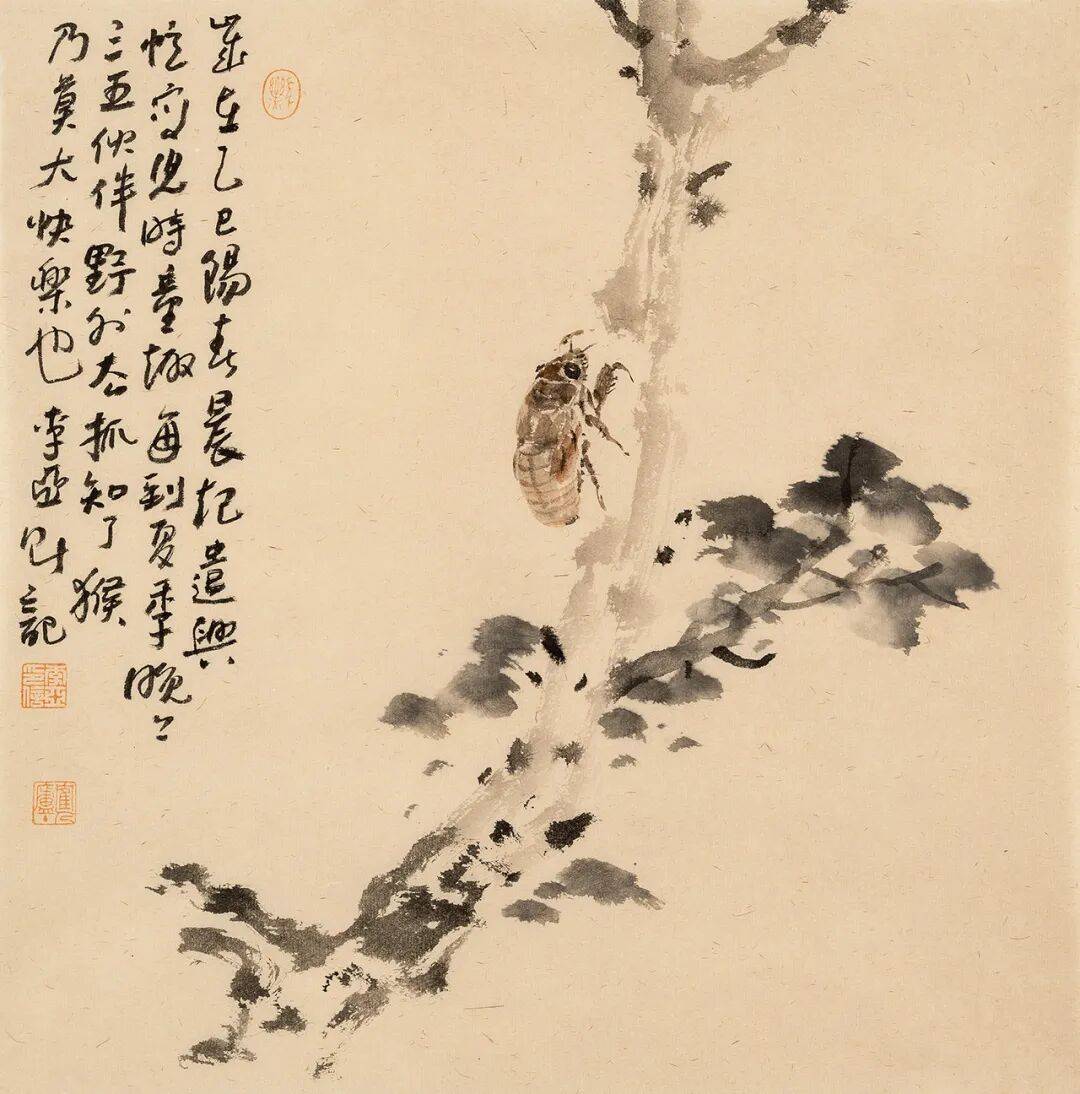 歲在乙巳陽春晨起遣興
忆寫兒時童趣每到夏季晚上
三五伙伴野外去抓知了猴
乃莫大快樂也 李亞财記
李氏印信